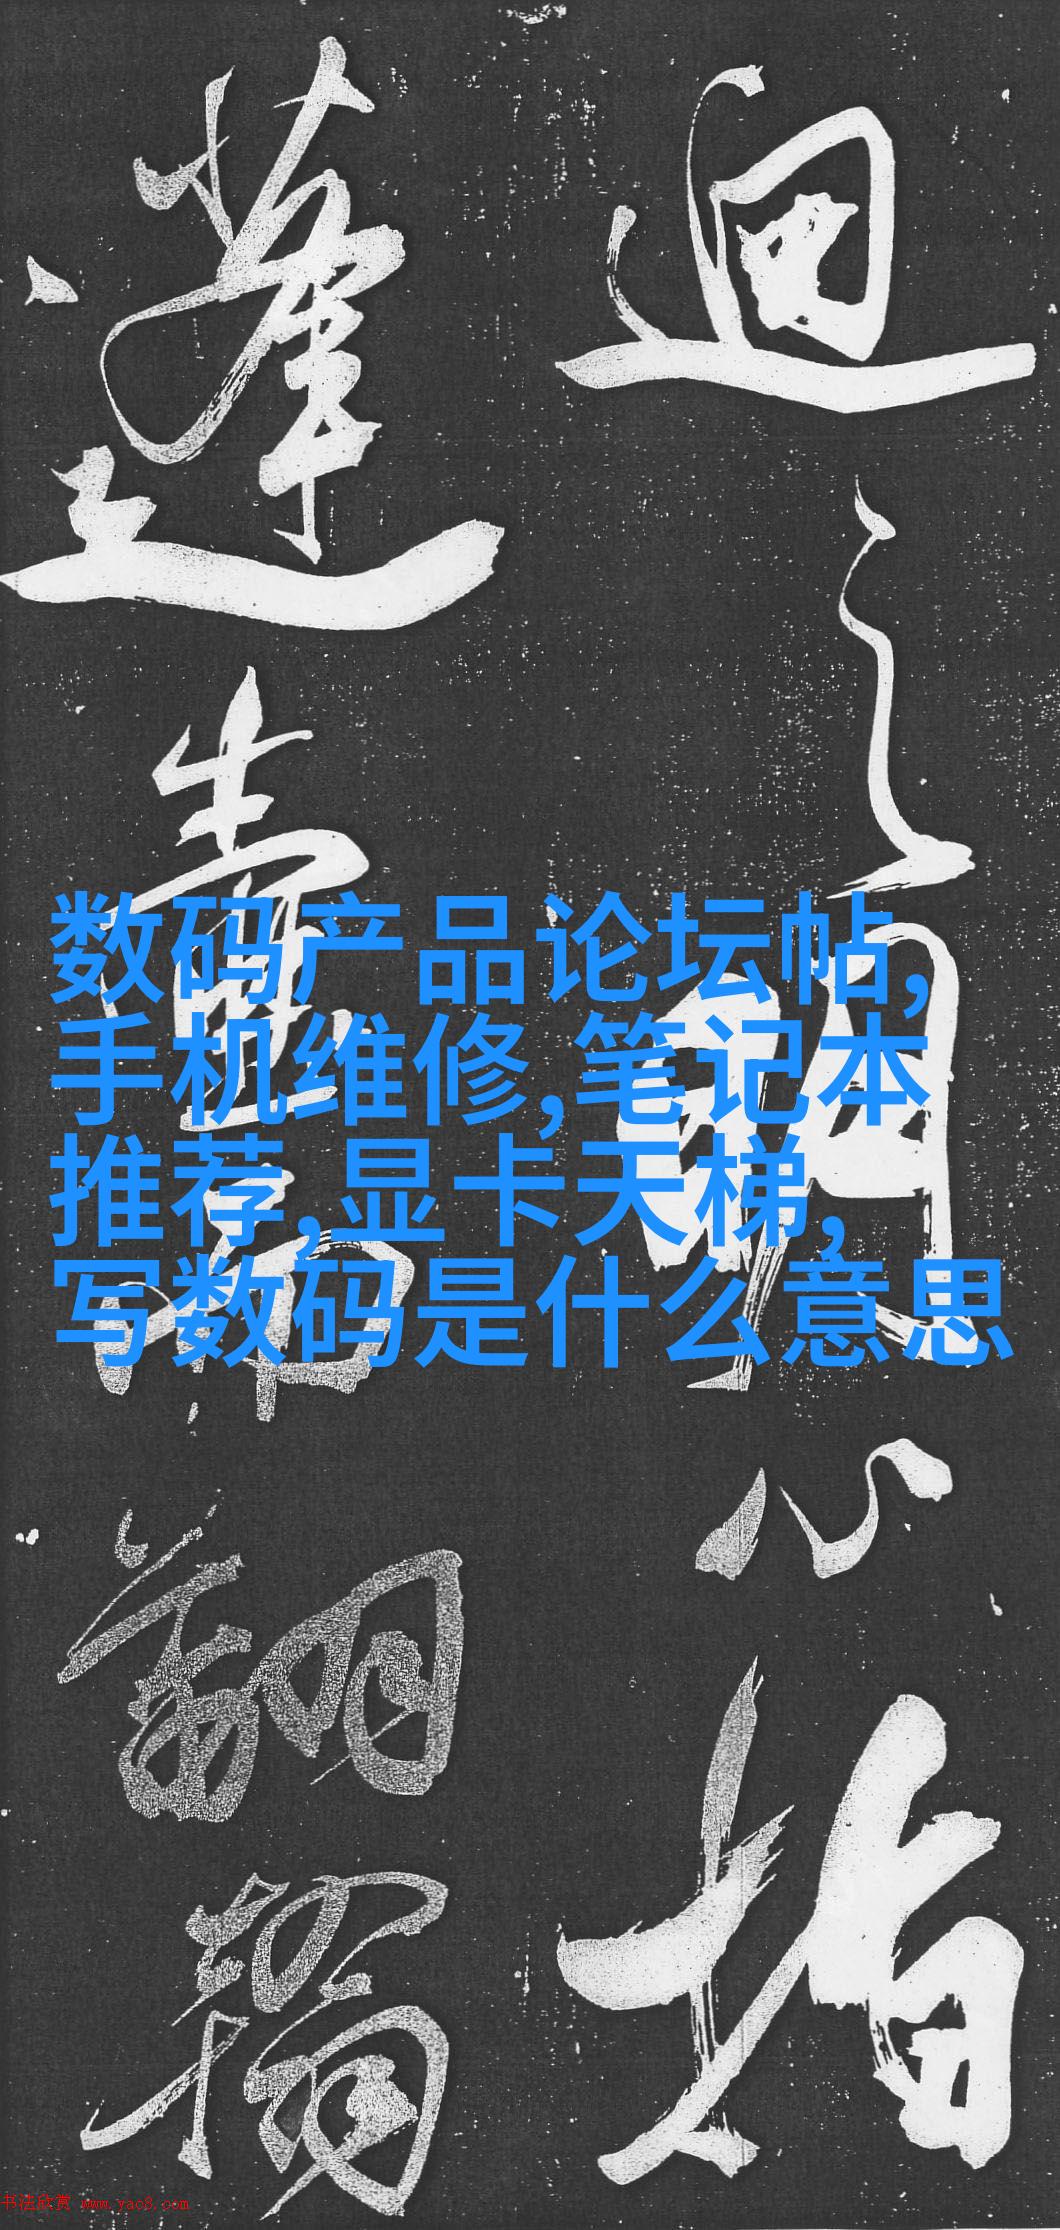 迴
之
心
指
蓬
壶
翻
翰
数码产品论坛帖,
手机维修,笔记本
推荐,显卡天梯,
写数码是什么意思
书法欣赏 www.yac8.com